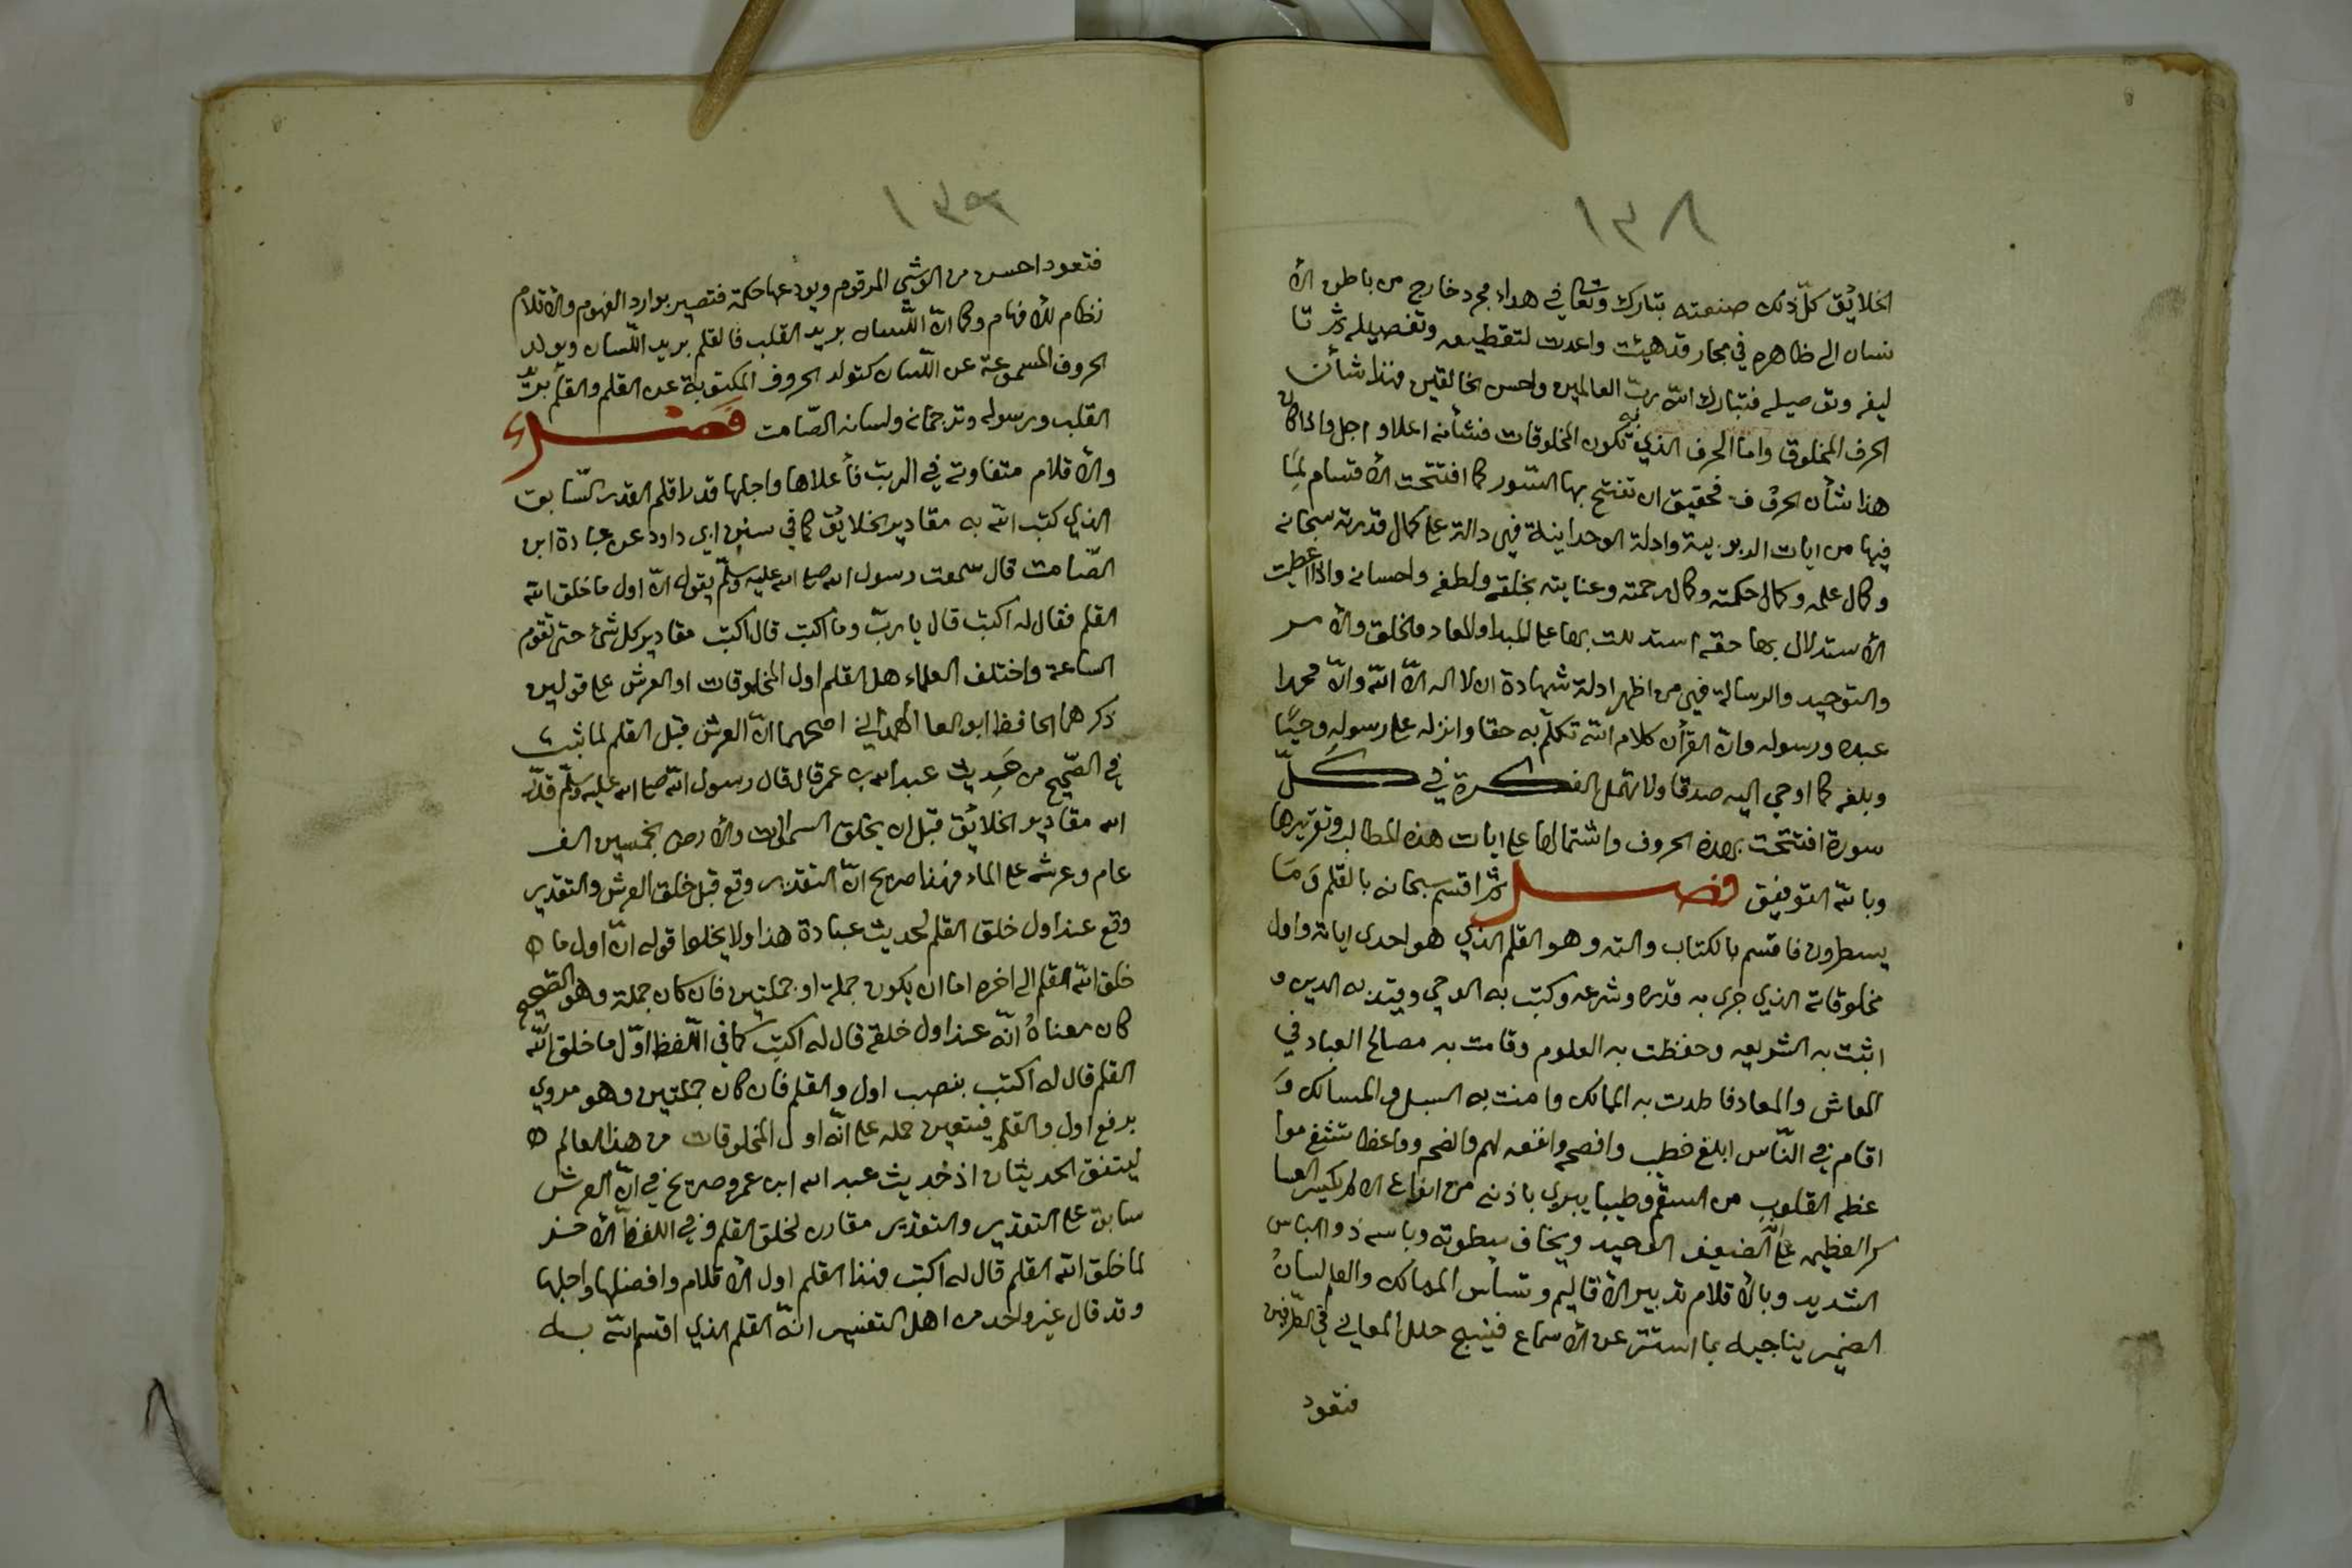 ١٣٨
الخلايق كلّ ذلك صنعته تبارك وتعالى في هواء مجرد خارج من باطن الأ
نسان الى ظاهره في مجار قد هيئت واعدت لتقطيعه وتفصيله ثم تا
ليفه وتوصيله فتبارك الله ربّ العالمين واحسن الخالقين فهذا شأن
الحرف المخلوق واما الحرف الذي به تكون المخلوقات فشأنه اعلا واجل واذا كان
هذا شأن الحروف فحقيق ان تفتتح بها السّور كما افتتحت الأقسام لمَا
فيها من ايات الربوبية وادلة الوحدانية فهي دالة على كمال قدرته سبحانه
وكمال علمه وكمال حكمته وكمال رحمته وعنايته بخلقه ولطفه واحسانه واذا اعطيت
الأستدلال بها حقه استدللت بها على المبدا والمعاد والخلق والأمر
والتوحيد والرسالة فهي من اظهر ادلة شهادة ان لا اله الّا الله وانّ محمدا
عبده ورسوله وانّ القرأن كلام الله تكلّم به حقا وانزله على رسوله وحيًا
وبلغه كما اوحي اليه صدقا ولا تهمل الفكرة في كلّ
سورة افتتحت بهذه الحروف واشتمالها على ايات هذه المطالب وتقريرها
وبالله التوفيق فصل ثم اقسم سبحانه بالقلم وَمَا
يسطرون فاقسم بالكتاب والته وهو القلم الذي هو احدى اياته واول
مخلوقاته الذي جرى به قدره وشرعه وكتب به الوحي وقيد به الدين و
اثبت به الشريعه وحفظت به العلوم وقامت به مصالح العباد في
المعاش والمعاد فاطدت به الممالك وامنت به السبل والمسالك وَ
اقام في النّاس ابلغ خطيب وافصحه وانفعه لهم وانصحه وواعظا تشفى موا
عظه القلوب من السقم وطبيبا يبري باذنه من انواع الالم يكسر العسا
كر العظيمه على انّه الضعيف الوحيد ويخاف سطوته وباسه ذو الباس
الشديد وبالأقلام تدبير الأقاليم وتساس الممالك والقلم لسانُ
الضمير يناجيه بما استتر عن الأسماع فينسج حلل المعاني في الطرفين
فتعود
١٣٩
فتعود احسن من الوشى المرقوم ويودعها حكمة فتصير بوارد الفهوم والأقلام
نظام للأفهام وكما انّ اللّسان بريد القلب فالقلم بريد اللّسان ويولد
الحروف المسموعة عن اللّسان كتولد الحروف المكتوبة عن القلم والقلم بريد
القلب ورسوله وترجمانه ولسانه الصّامت فَصْل
والأقلام متفاوتة في الرتب فأعلاها واجلها قدرا قلم القدر السّابق
الذي كتب الله به مقادير الخلايق كما في سنن ابي داود عن عبادة ابن
الصّامت قال سمعت رسول الله صلى الله عليه وسلّم يقول انّ اول ما خلق الله
القلم فقال له اكتب قال يا ربّ وما اكتب قال اكتب مقادير كل شئ حتى تقوم
الساعة واختلف العلماء هل القلم اول المخلوقات او العرش على قولين
ذكرهما الحافظ ابو العلا الهمداني اصحهما انّ العرش قبل القلم لما ثبت
في الصّحيح من حَديث عبد الله بن عمر قال قال رسول الله صلى الله عليه وسلّم قدّر
الله مقادير الخلائق قبل ان يخلق السموات والأرض بخمسين الف
عام وعرشه على الماء فهذا صريح انّ التقدير وقع قبل خلق العرش والتقدير
وقع عند اول خلق القلم لحديث عبادة هذا ولا يخلوا قوله انّ اول ما
خلق الله القلم الى اخره اما ان يكون جملة او جملتين فان كان جملة وهو الصّحيح
كان معناهُ انّه عند اول خلقه قال له اكتب كما في اللّفظ اوّل ما خلق الله
القلم قال له اكتب بنصب اول والقلم فان كان جملتين وهو مروي
برفع اول والقلم فيتعين حمله على انّه اول المخلوقات من هذا العالم
ليتفق الحديثان اذ حديث عبد الله ابن عمر وصريح في انّ العرش
سابق على التقدير والتقدير مقارن لخلق القلم وفي اللفظ الأخر
لما خلق الله القلم قال له اكتب فهذا القلم اول الأقلام وافضلها واجلها
وقد قال غير واحد من اهل التفسير انّه القلم الذي اقسم الله به